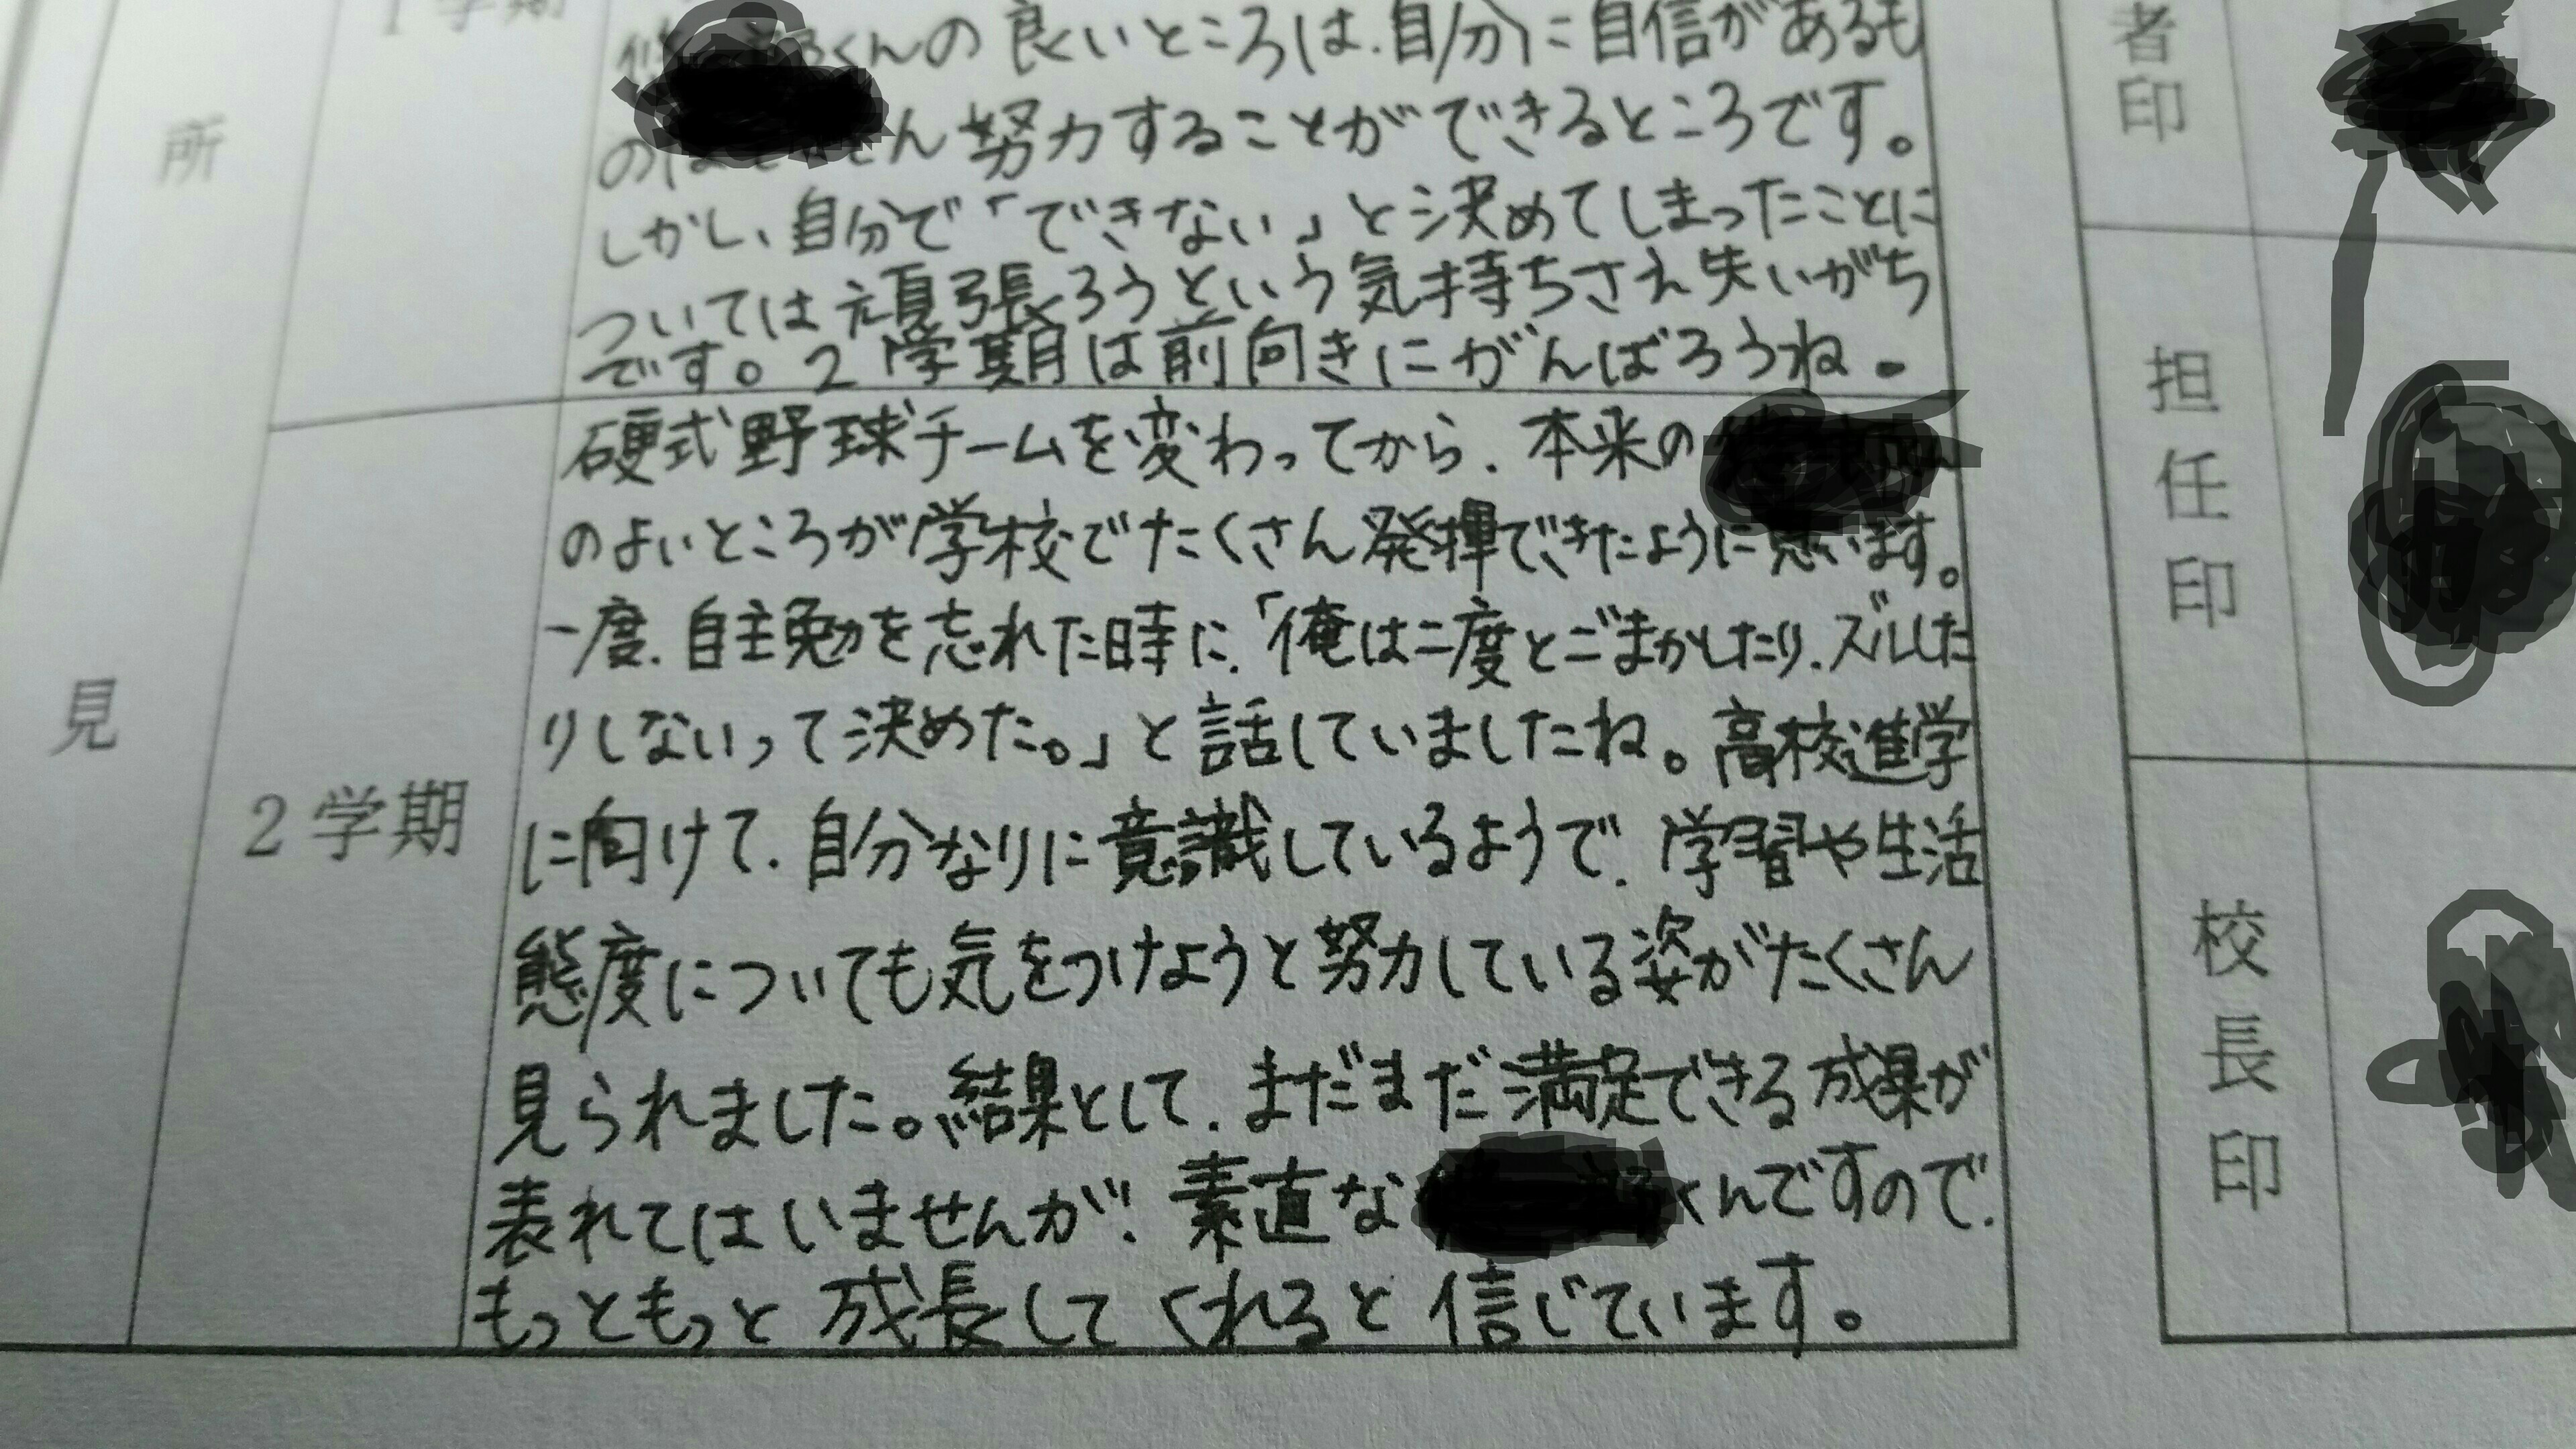 1学期
くんの良いところは、自分に自信があるも
のはたくさん努力することができるところです。
しかし、自分で「できない」と決めてしまったことに
ついては頑張ろうという気持ちさえ失いがち
です。2学期は前向きにがんばろうね。
所見
2学期
硬式野球チームを変わってから、本来の
のよいところが学校でたくさん発揮できたように思います。
一度、自主勉を忘れた時に、「俺は二度とごまかしたり、ズルした
りしないって決めた。」と話していましたね。高校進学
に向けて、自分なりに意識しているようで、学習や生活
態度についても気をつけようと努力している姿がたくさん
見られました。結果として、まだまだ満足できる成果が
表れてはいませんが、素直な
くんですので、
もっともっと成長してくれると信じています。
者印
担任印
校長印